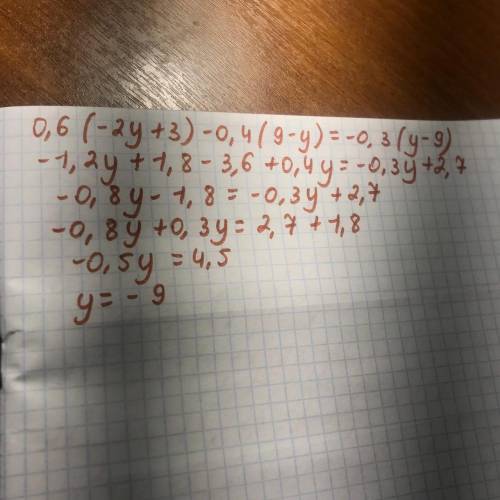 0,6 (-2y+3) -0,4(9-y)=-0,3(y-9)
-1,2y+1,8-3,6+0,4y=-0,3y+2,7
-0,8y-1,8=-0,3y+2,7
-0,8y+0,3y=2,7+1,8
-0,5y=4,5
y=-9